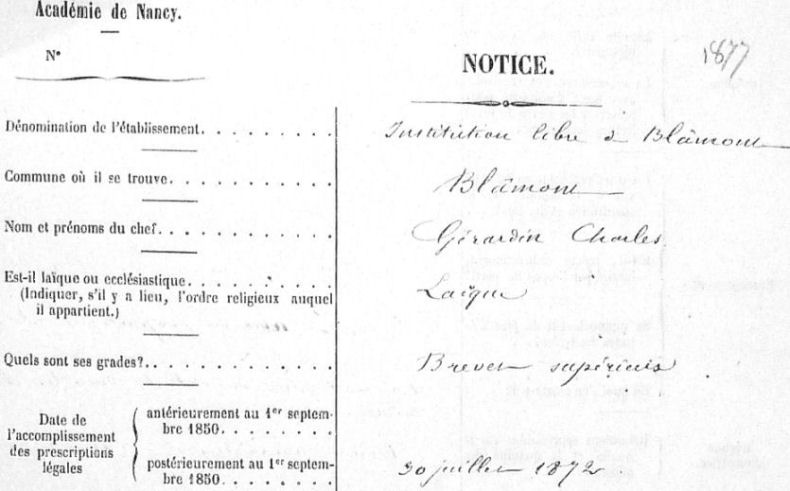 Académie de Nancy.
N°
NOTICE.
1877
Dénomination de l'établissement. . . . . . . . . Institution libre de Blâmont
Commune où il se trouve. . . . . . . . . . . Blâmont
Nom et prénoms du chef. . . . . . . . . . . . Gérardin Charles
Est-il laïque ou ecclésiastique. . . . . . . . . . Laïque
(Indiquer, s'il y a lieu, l'ordre religieux auquel
il appartient.)
Quels sont ses grades?. . . . . . . . . . . . . Brevet supérieur
Date de
l'accomplissement
des prescriptions
légales
antérieurement au 1er septem-
bre 1850. . . . . . . .
postérieurement au 1er septem-
bre 1850. . . . . . . . 30 juillet 1872